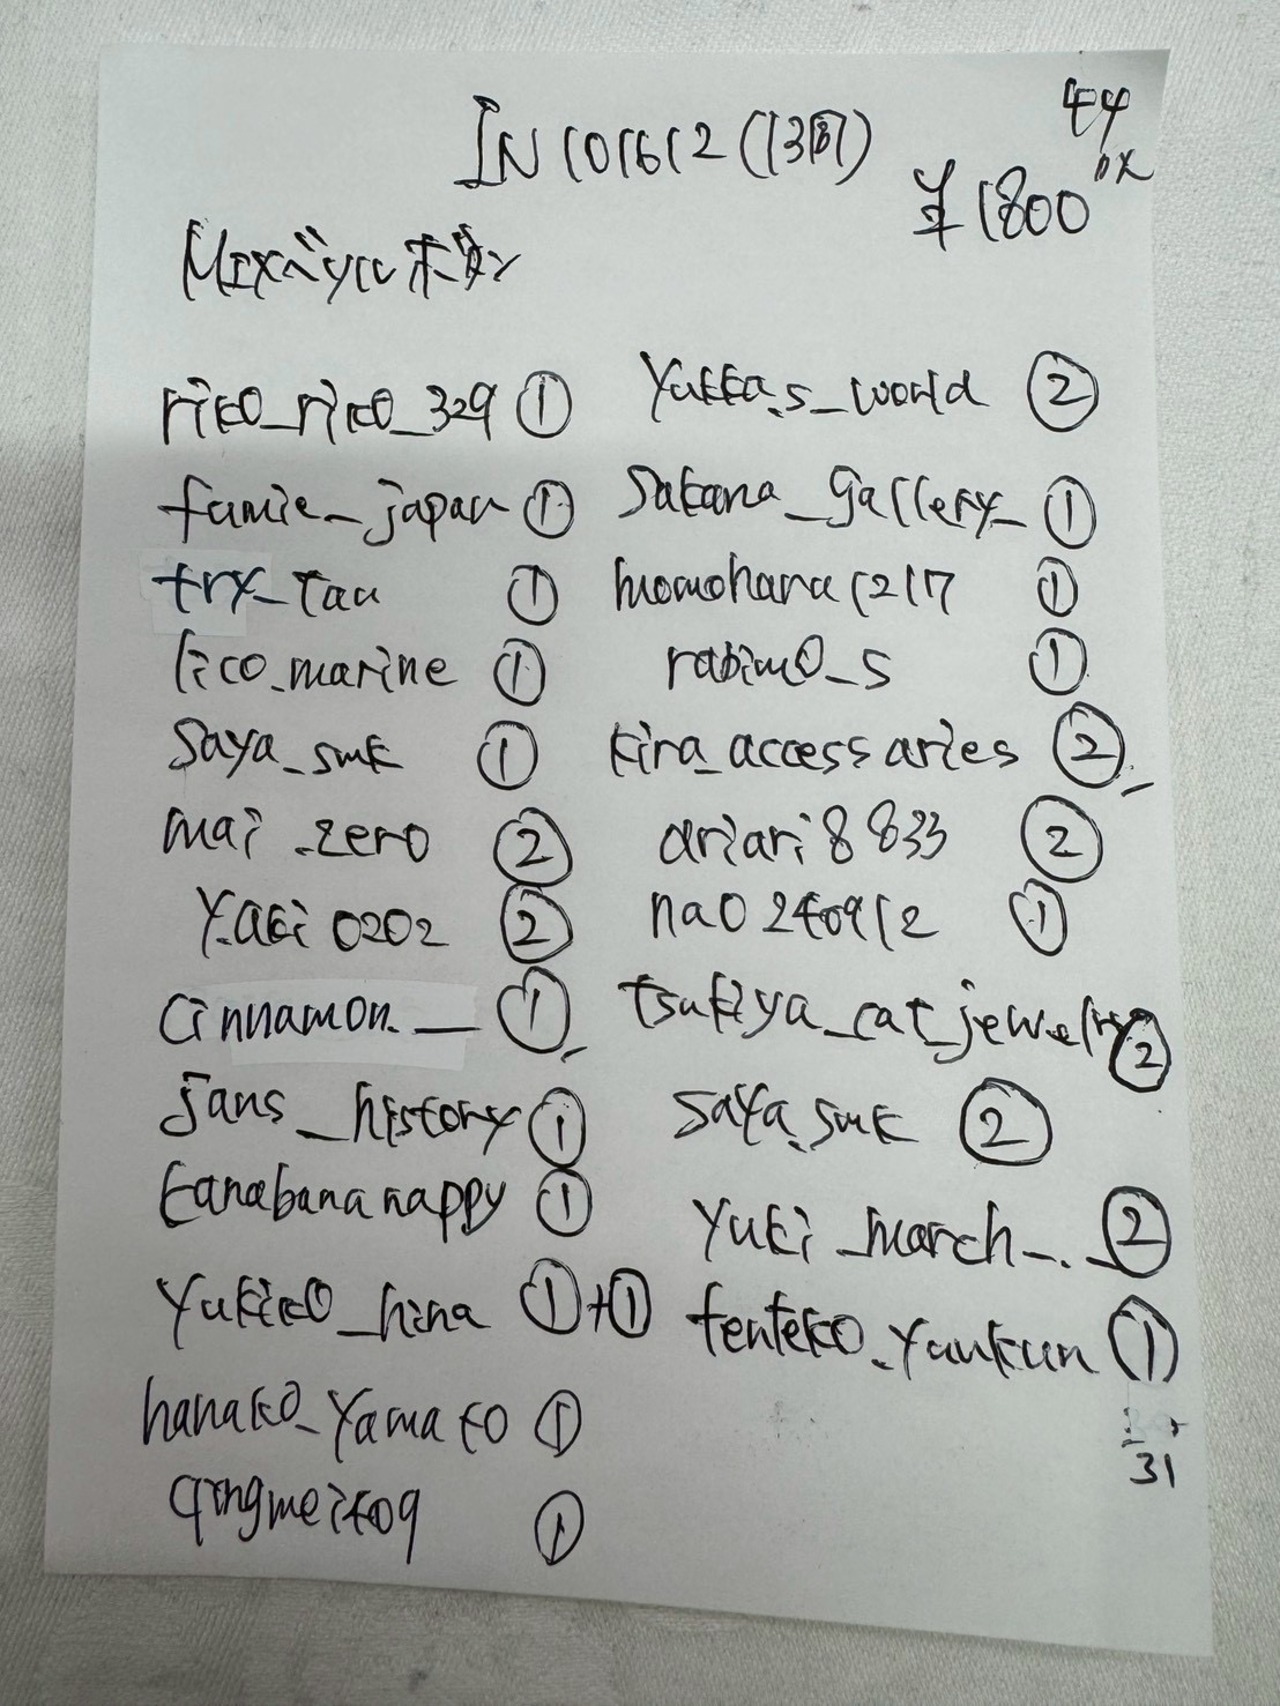 IN101612(13開)
44
¥1800
MIXベリルボタン
rico_rico_329 ①
famie_japan ①
try_tau ①
lico_marine ①
saya_smk ①
mai.zero ②
y.aki0202 ②
cinnamon._ ①
jans_history ①
kanabananappy ①
yukiko_hina ①+①
hanako_yamato ①
qingmei409 ①
yukka.s_world ②
sakana_gallery_ ①
momohana1217 ①
rabimo_s ①
kira_accessaries ②
ariari8833 ②
nao240912 ①
tsukiya_cat_jewelry ②
saya_smk ②
yuki_march_._ ②
tenteko.yaukun ①
31